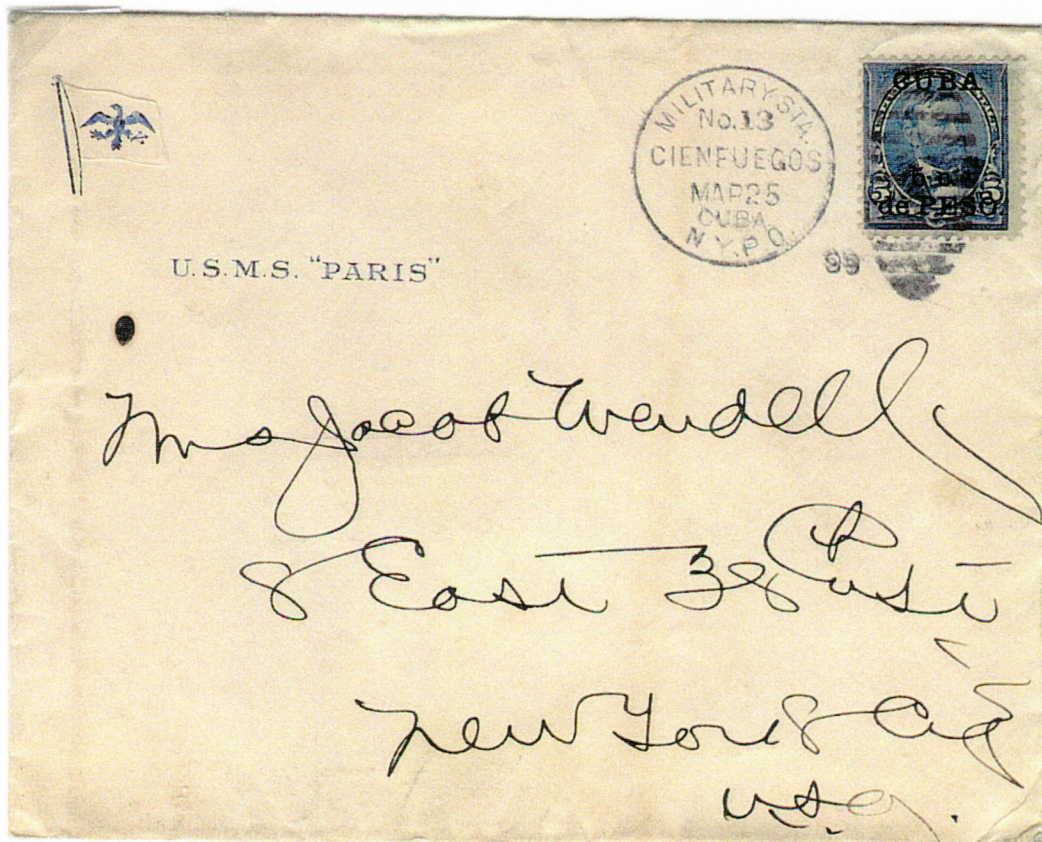 MILITARY STA.
No.13
CIENFUEGOS
MAR25
CUBA
N.Y.P.O.
99
CUBA
5 c.
de PESO
5 5
U.S.M.S. "PARIS"
Mrs Jacob Wendell
8 East 38
New York City
U.S.A.